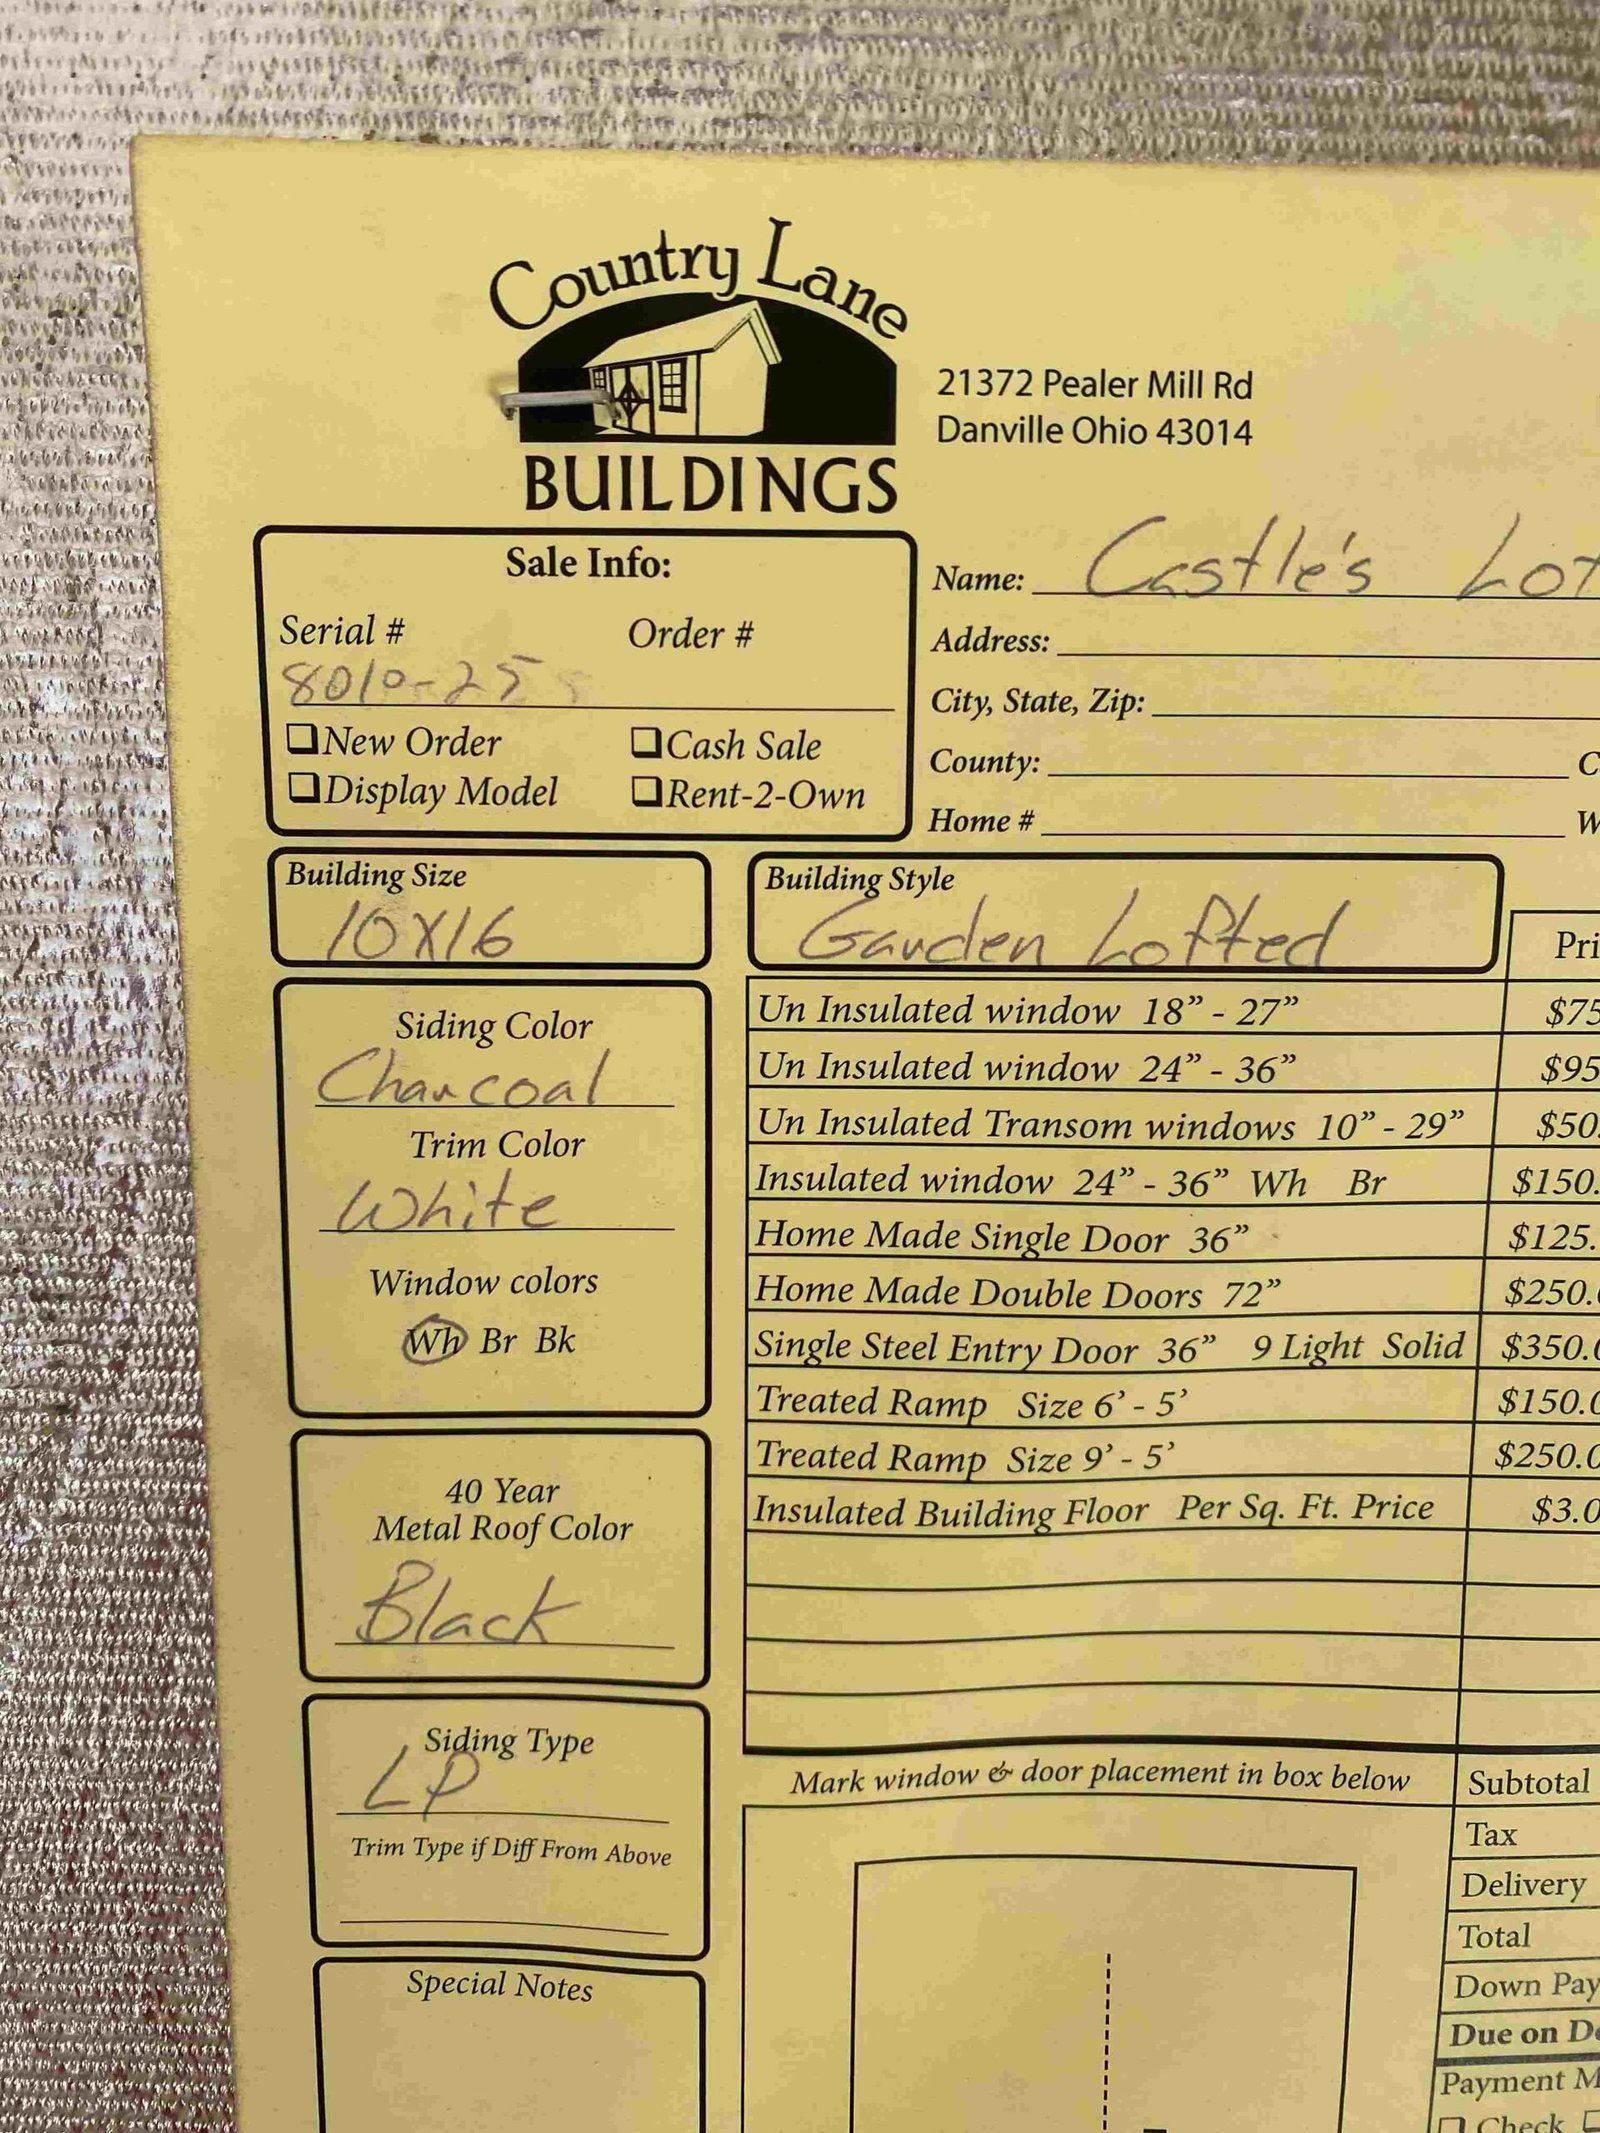 Country Lane
BUILDINGS
21372 Pealer Mill Rd
Danville Ohio 43014
Sale Info:
Serial # Order #
8010-25
❑New Order ❑Cash Sale
❑Display Model ❑Rent-2-Own
Name: Castle's Lot
Address:
City, State, Zip:
County: C
Home # W
Building Size
10X16
Building Style
Garden Lofted
Pri
Siding Color
Charcoal
Trim Color
White
Window colors
Wh Br Bk
40 Year
Metal Roof Color
Black
Siding Type
LP
Trim Type if Diff From Above
Special Notes
Un Insulated window 18” - 27” $75
Un Insulated window 24” - 36” $95
Un Insulated Transom windows 10” - 29” $50.
Insulated window 24” - 36” Wh Br $150.
Home Made Single Door 36” $125.
Home Made Double Doors 72” $250.0
Single Steel Entry Door 36” 9 Light Solid $350.0
Treated Ramp Size 6’ - 5’ $150.0
Treated Ramp Size 9’ - 5’ $250.0
Insulated Building Floor Per Sq. Ft. Price $3.0
Mark window & door placement in box below
Subtotal
Tax
Delivery
Total
Down Pay
Due on De
Payment M
❑ Check ❑